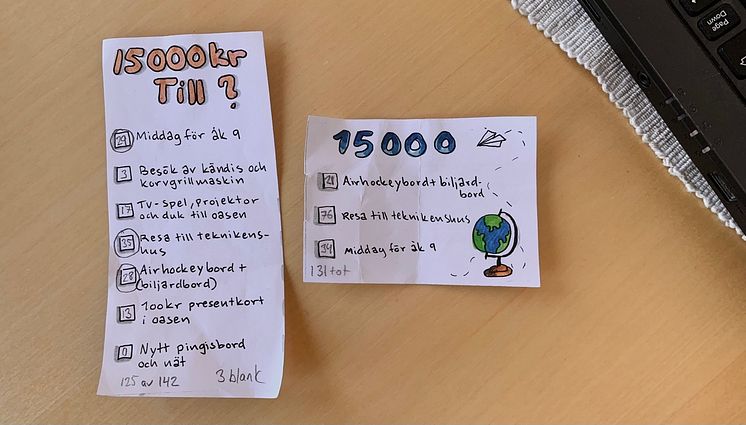 15000kr
Till?
29 Middag för åk 9
3 Besök av kändis och
korvgrillmaskin
17 Tv-spel, projektor
och duk till oasen
35 Resa till teknikens-
hus
28 Airhockeybord +
(biljardbord)
13 100kr presentkort
i oasen
0 Nytt pingisbord
och nät
125 av 142
3 blank
15000
21 Airhockeybord + biljard-
bord
76 Resa till teknikenshus
34 Middag för åk 9
131 tot
Page
Down